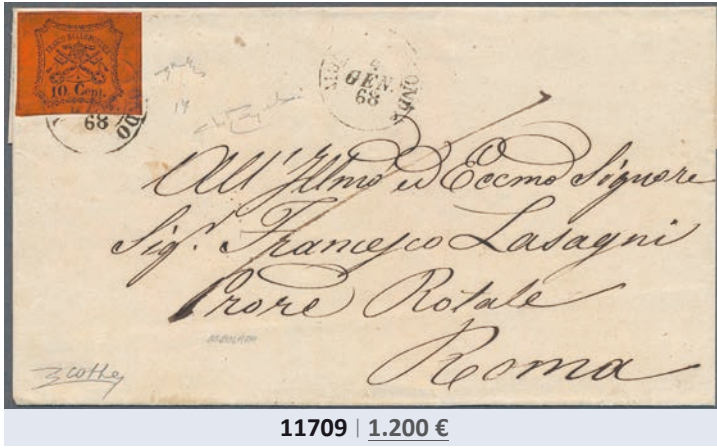 FRANCO BOLLO POSTALE
10 Cent.
68
4
GEN.
68
All'Illmo ed Eccmo Signore
Sigr. Francesco Lasagni
Prore Rotale
Roma
11709 | 1.200 €